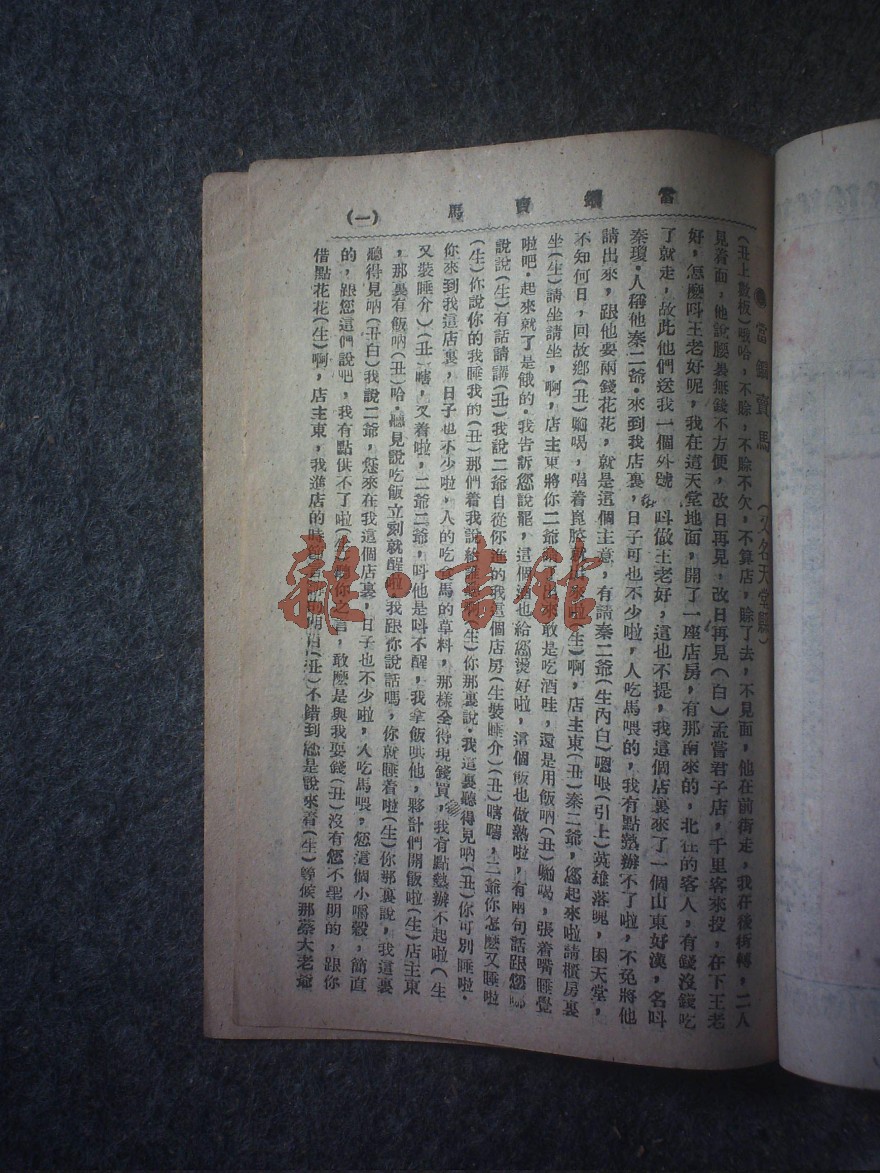 當鐧賣馬 (一)
當鐧賣馬 (又名天堂縣)
(丑上數板)哦哈，不賒，不賒不欠，不算店，賒了去，不見面，他在前街走，我在後街轉，二人
見着面，他說腰裏無錢不方便，改日再見，改日再見(白)孟嘗君子店，千里客來投，在下王老
好，怎麼呌王老好呢，我在這天堂地面，開了一座店房，有那南來的，北往的客人，有錢沒錢吃
了就走，故此他們送我一個外號，呌做王老好，這也不提，我這個店裏來了一個山東好漢，名呌
秦瓊·人稱他秦二爺·來到我店裏，日子可也不少啦，人吃馬喂的，我有點熱辦不了啦，不免將他
請出來，跟他要兩錢花花，就是這個主意，有請秦二爺(生內白)嗯哏(引上)英雄落魄，困天堂，
不知何日，回故鄉(丑)喲喝，唱着崑腔就出來啦(生)啊，店主東(丑)秦二爺，您起來啦請櫃房裏
坐(生)請坐請坐，啊，店主東將你二爺出來敢是吃酒哇，還是用飯吶(丑)喲喝，張着嘴睡覺
啦吧·起來就了是餓的·我告訴您說罷，這個酒也給您燙好啦，這個飯也做熱啦，有兩句話跟您
說說(生)有話請講(丑)我說二爺自從你進的我這個店房(生裝睡介)(丑)嗐嗐，二爺你怎麼又睡啦
(生)你說你的我睡我的(丑)那們着我說給誰聽啊(生)你那裏說·我這裏聽得見吶(丑)你可別睡啦·
你來到我這店裏，日子也不少啦，人的吃馬的草料，那樣全得現錢買，我有點熱辦不起啦(生
又裝睡介)(丑)嗐，又着啦，二爺二爺，呌他是呌不醒，我拿飯哄他，夥計們開飯啦(生)店主東
，那裏有飯吶(丑)哈·聽見說吃飯立刻就醒啦·我跟你說話嗎，你就睡着啦(生)你那裏說，我這裏
聽得見吶(丑白)我說二爺，您來在我這個店裏，日子也不少啦，人吃馬喂，您這個小嚼穀，簡直
的，跟您這們說吧，我有點供不了啦(生)聽你之言，敢麼是與我要錢(丑)沒有您不聖明的，跟你
借點花花(生)啊，店主東，我進店的時節言講的明白(丑)不錯到您是說來着(生)等候那蔡大老爺
雜·書館